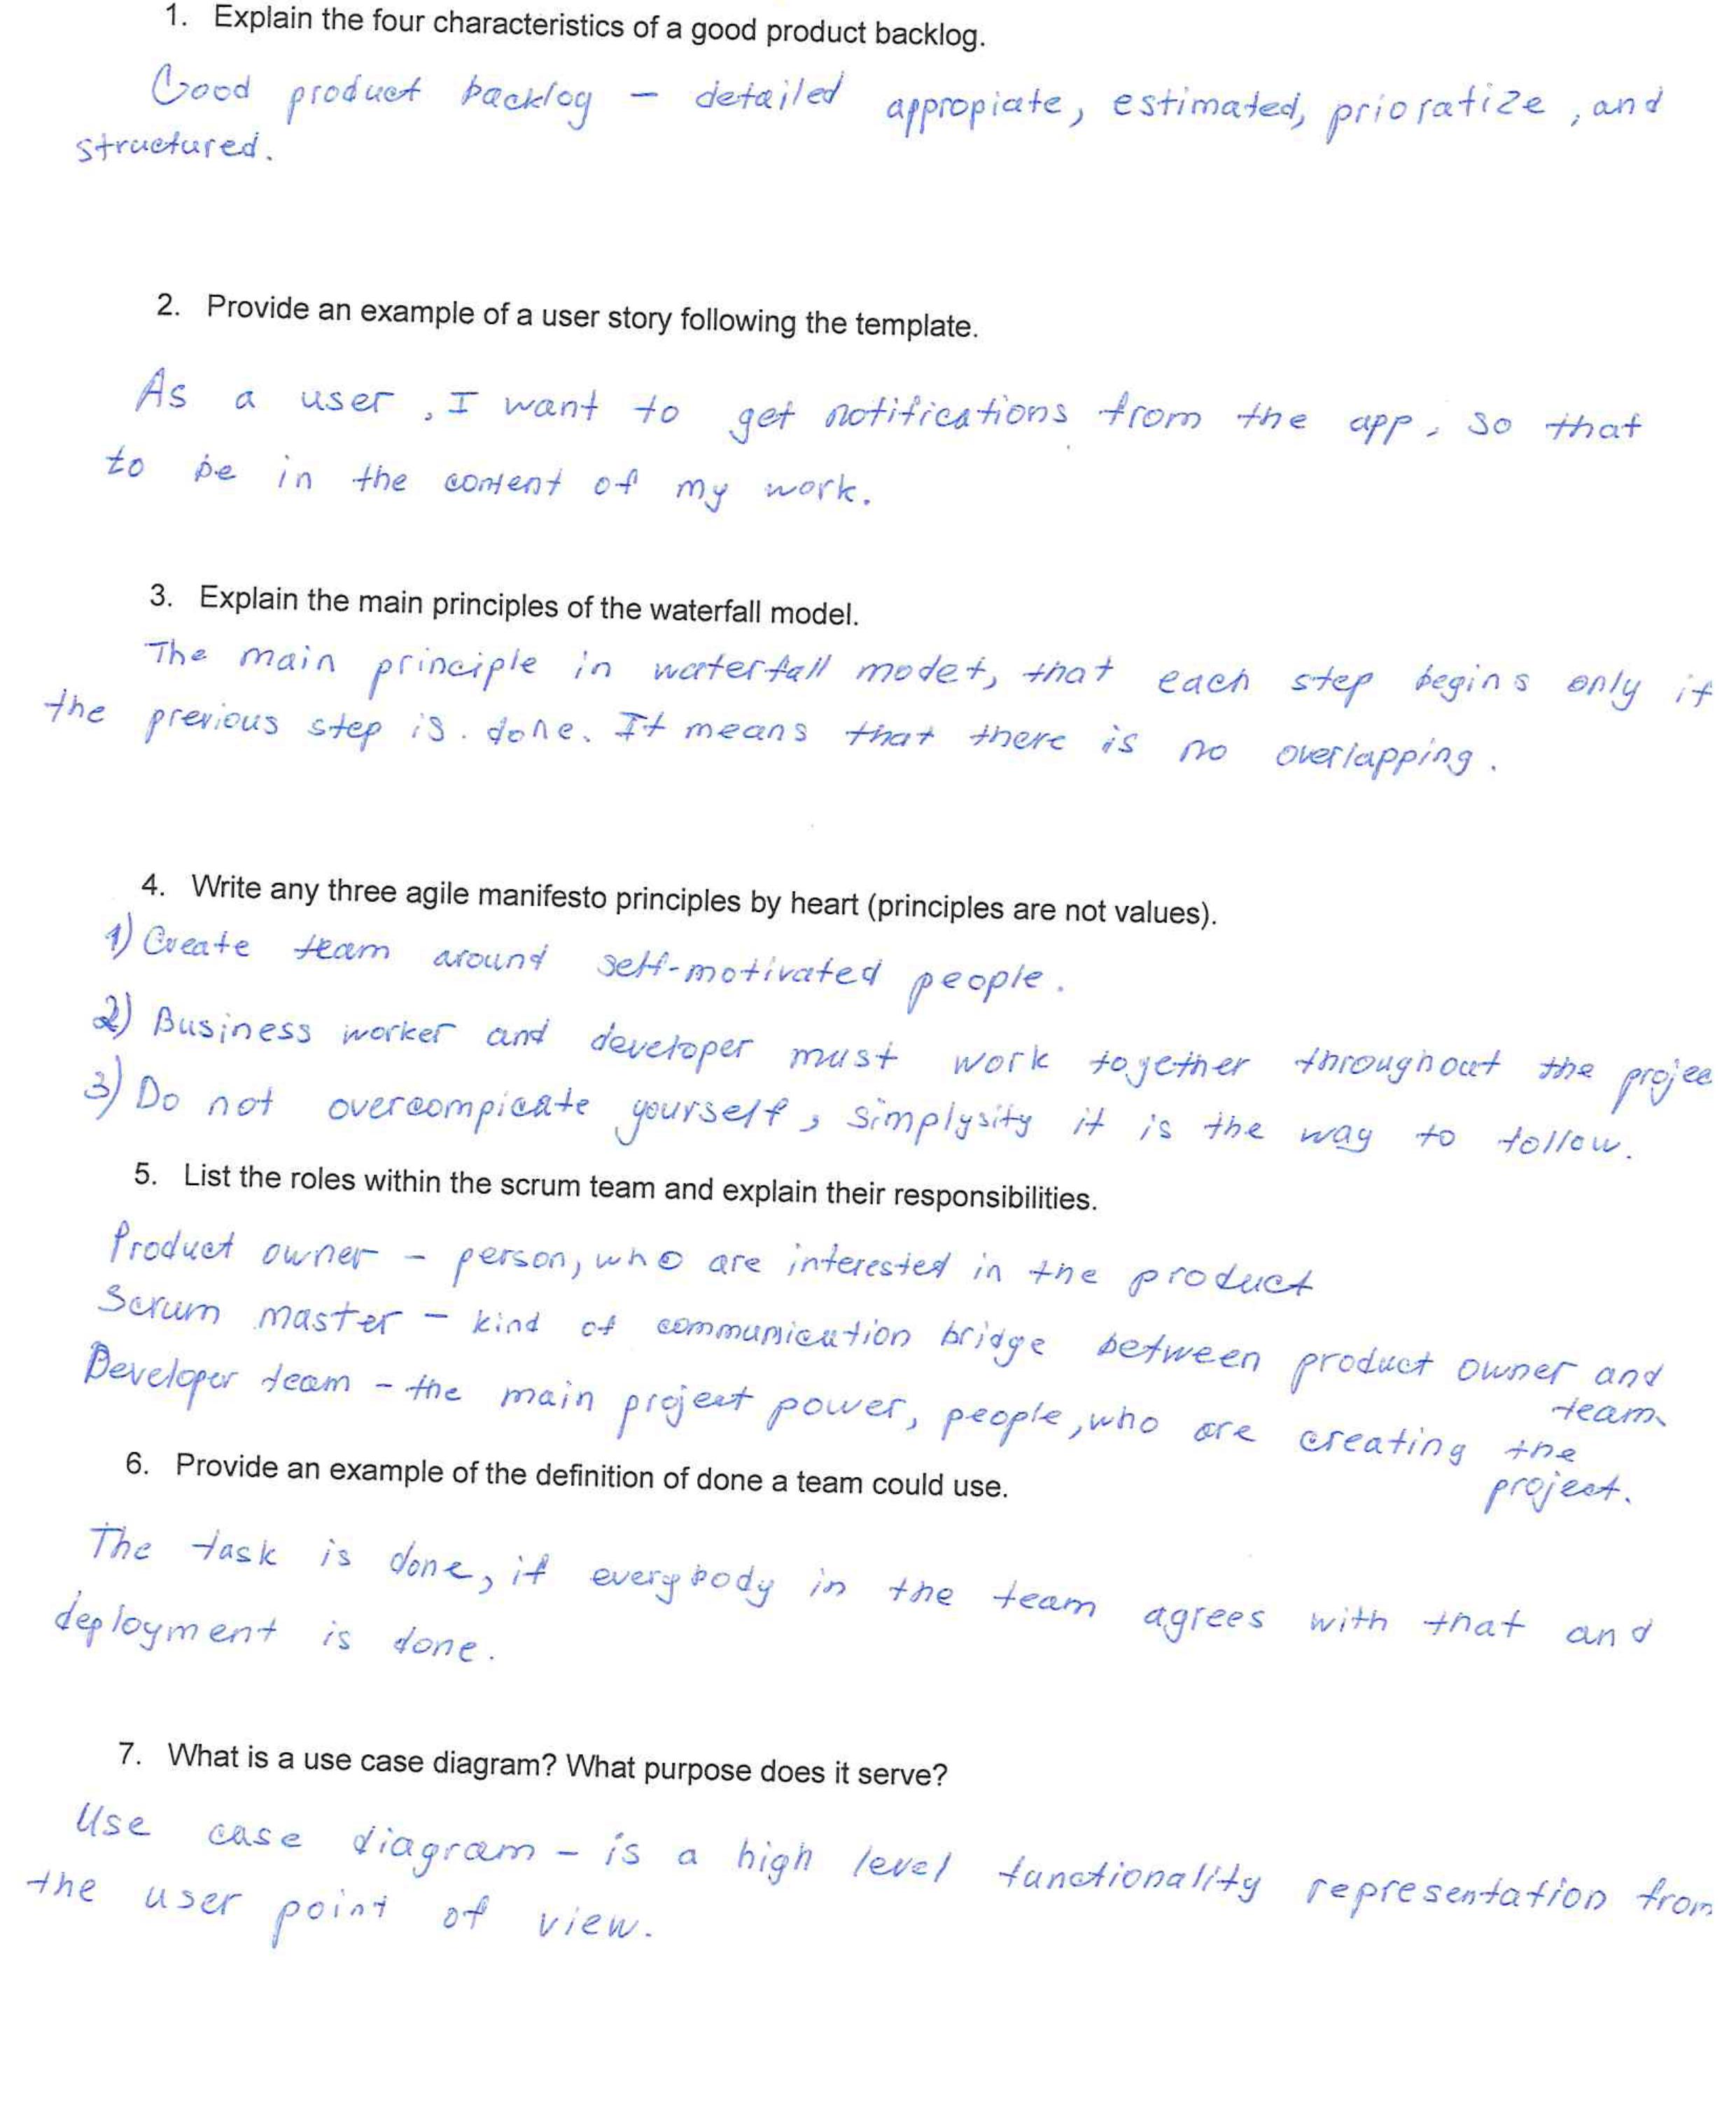 1. Explain the four characteristics of a good product backlog.
Good product backlog – detailed appropiate, estimated, prioratize, and
structured.
2. Provide an example of a user story following the template.
As a user, I want to get notifications from the app, so that
to be in the content of my work.
3. Explain the main principles of the waterfall model.
The main principle in waterfall model, that each step begins only if
the previous step is done. It means that there is no overlapping.
4. Write any three agile manifesto principles by heart (principles are not values).
1) Create team around self-motivated people.
2) Business worker and developer must work together throughout the projec
3) Do not overcompicate yourself, simplysity it is the way to follow.
5. List the roles within the scrum team and explain their responsibilities.
Product owner – person, who are interested in the product
Scrum master – kind of communication bridge between product owner and
team.
Developer team – the main project power, people, who are creating the
project.
6. Provide an example of the definition of done a team could use.
The task is done, if everybody in the team agrees with that and
deployment is done.
7. What is a use case diagram? What purpose does it serve?
Use case diagram – is a high level functionality representation from
the user point of view.